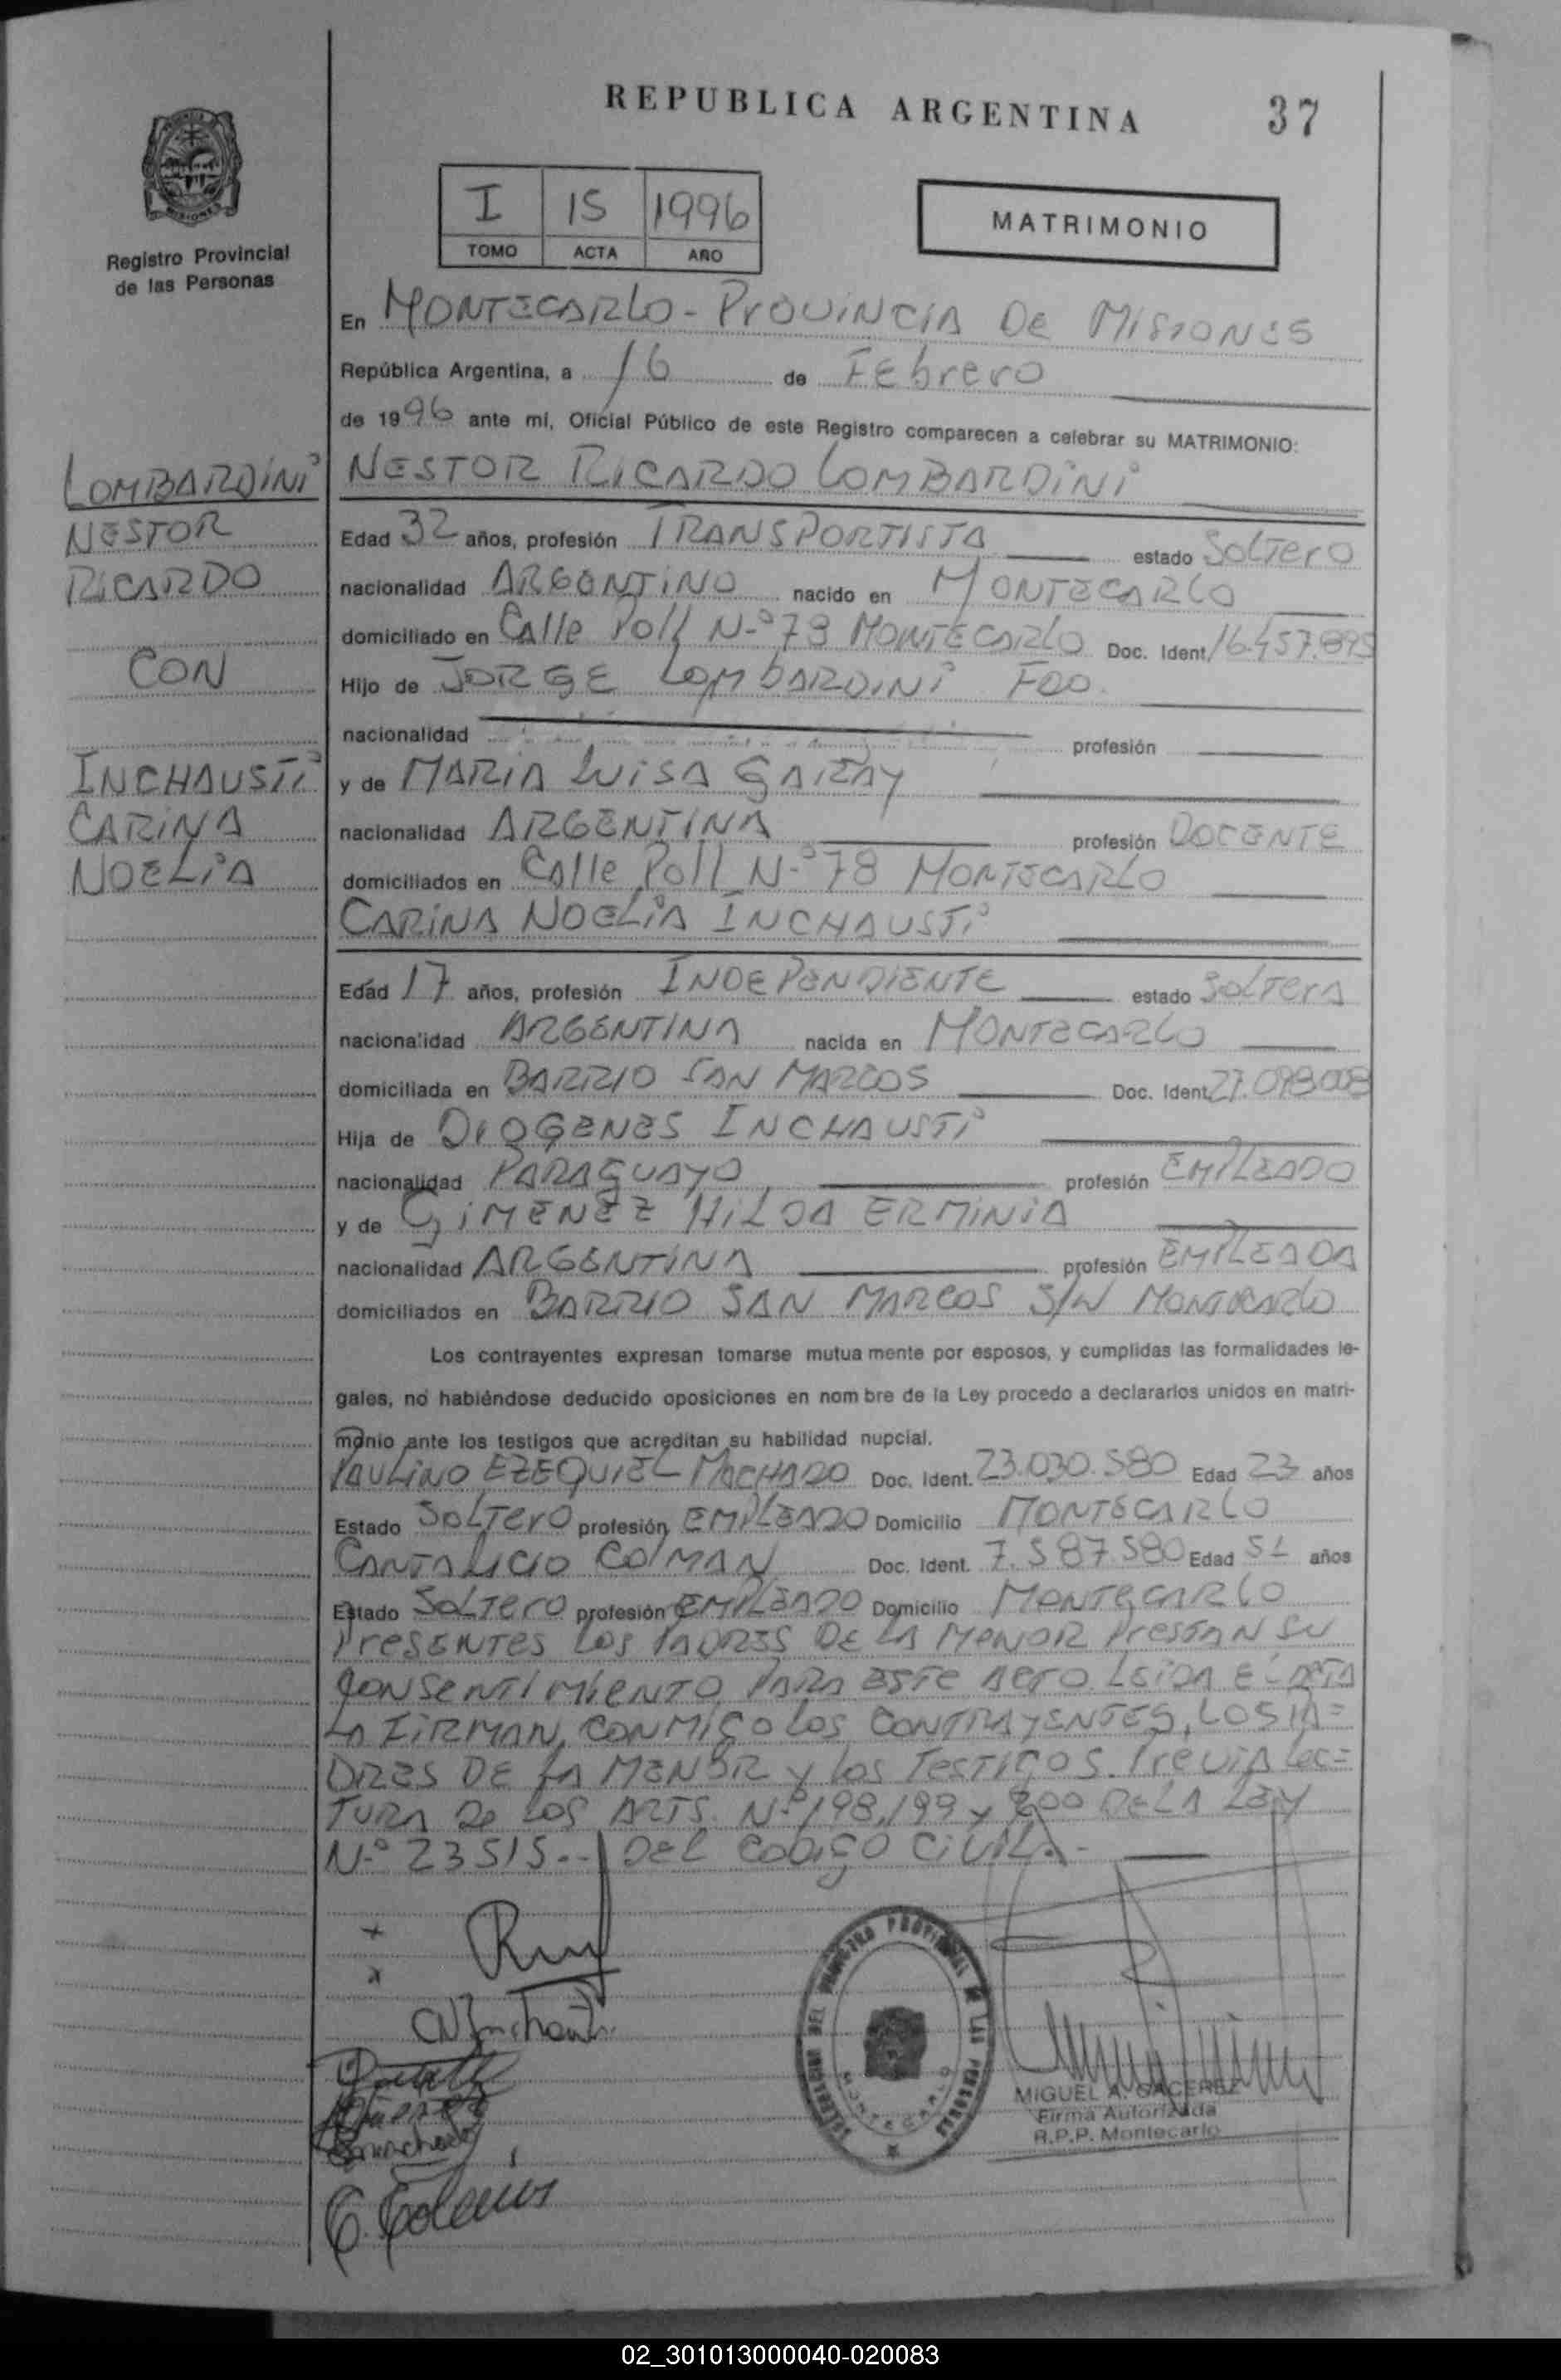 REPUBLICA ARGENTINA
37
MISIONES
Registro Provincial
de las Personas
I 15 1996
TOMO ACTA AÑO
MATRIMONIO
En MONTECARLO - PROVINCIA DE MISIONES
República Argentina, a 16 de Febrero
de 1996 ante mi, Oficial Público de este Registro comparecen a celebrar su MATRIMONIO:
LOMBARDINI
NESTOR
RICARDO
CON
INCHAUSTI
CARINA
NOELIA
NESTOR RICARDO LOMBARDINI
Edad 32 años, profesión TRANSPORTISTA estado SOLTERO
nacionalidad ARGENTINO nacido en MONTECARLO
domiciliado en Calle Poll N-º 78 MONTECARLO Doc. Ident. 16.457.895
Hijo de JORGE LOMBARDINI FDO.
nacionalidad profesión
y de MARIA LUISA GARAY
nacionalidad ARGENTINA profesión DOCENTE
domiciliados en Calle Poll N-º 78 MONTECARLO
CARINA NOELIA INCHAUSTI
Edad 17 años, profesión INDEPENDIENTE estado SOLTERA
nacionalidad ARGENTINA nacida en MONTECARLO
domiciliada en BARRIO SAN MARCOS Doc. Ident. 27.098.008
Hija de DIOGENES INCHAUSTI
nacionalidad PARAGUAYO profesión EMPLEADO
y de GIMENEZ HILDA ERMINIA
nacionalidad ARGENTINA profesión EMPLEADA
domiciliados en BARRIO SAN MARCOS S/N MONTECARLO
Los contrayentes expresan tomarse mutua mente por esposos, y cumplidas las formalidades le-
gales, no habiéndose deducido oposiciones en nom bre de la Ley procedo a declararlos unidos en matri-
monio ante los testigos que acreditan su habilidad nupcial.
PAULINO EZEQUIEL MACHADO Doc. Ident. 23.030.580 Edad 23 años
Estado SOLTERO profesión EMPLEADO Domicilio MONTECARLO
CANTALICIO COLMAN Doc. Ident. 7.587.580 Edad 51 años
Estado SOLTERO profesión EMPLEADO Domicilio MONTECARLO
PRESENTES LOS PADRES DE LA MENOR PRESTAN SU
CONSENTIMIENTO PARA ESTE ACTO. LEIDA EL ACTA
LA FIRMAN, CONMIGO LOS CONTRAYENTES, LOS PA=
DRES DE LA MENOR y los TESTIGOS. PREVIA LEC=
TURA DE LOS ARTS. Nº 198, 199 y 200 DE LA LEY
N-º 23515.- DEL CODIGO CIVIL.-
CNInchausti
MIGUEL A. CACERES
Firma Autorizada
R.P.P. Montecarlo
02_301013000040-020083